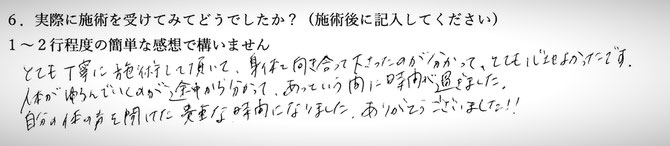 6．実際に施術を受けてみてどうでしたか？（施術後に記入してください）
1～2行程度の簡単な感想で構いません
とても丁寧に施術して頂いて、身体と向き合って下さったのが分かって、とても心地よかったです。
体がゆるんでいくのが途中から分かって、あっという間に時間が過ぎました。
自分の体の声を聞けた貴重な時間になりました。ありがとうございました!!